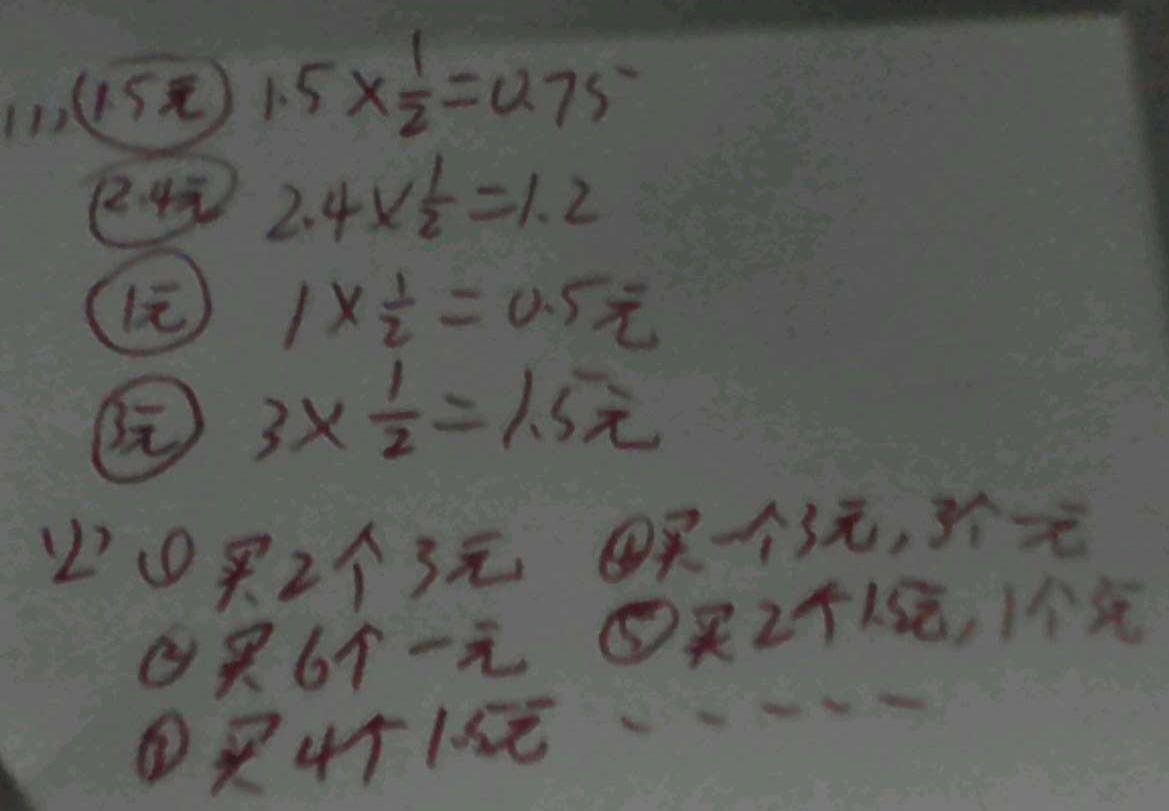 (1) 1.5元 1.5×1/2=0.75
2.4元 2.4×1/2=1.2
1元 1×1/2=0.5元
3元 3×1/2=1.5元
(2) ① 买2个3元 ④买一个3元,3个一元
② 买6个一元 ⑤买2个1.5元,1个3元
③ 买4个1.5元 -----